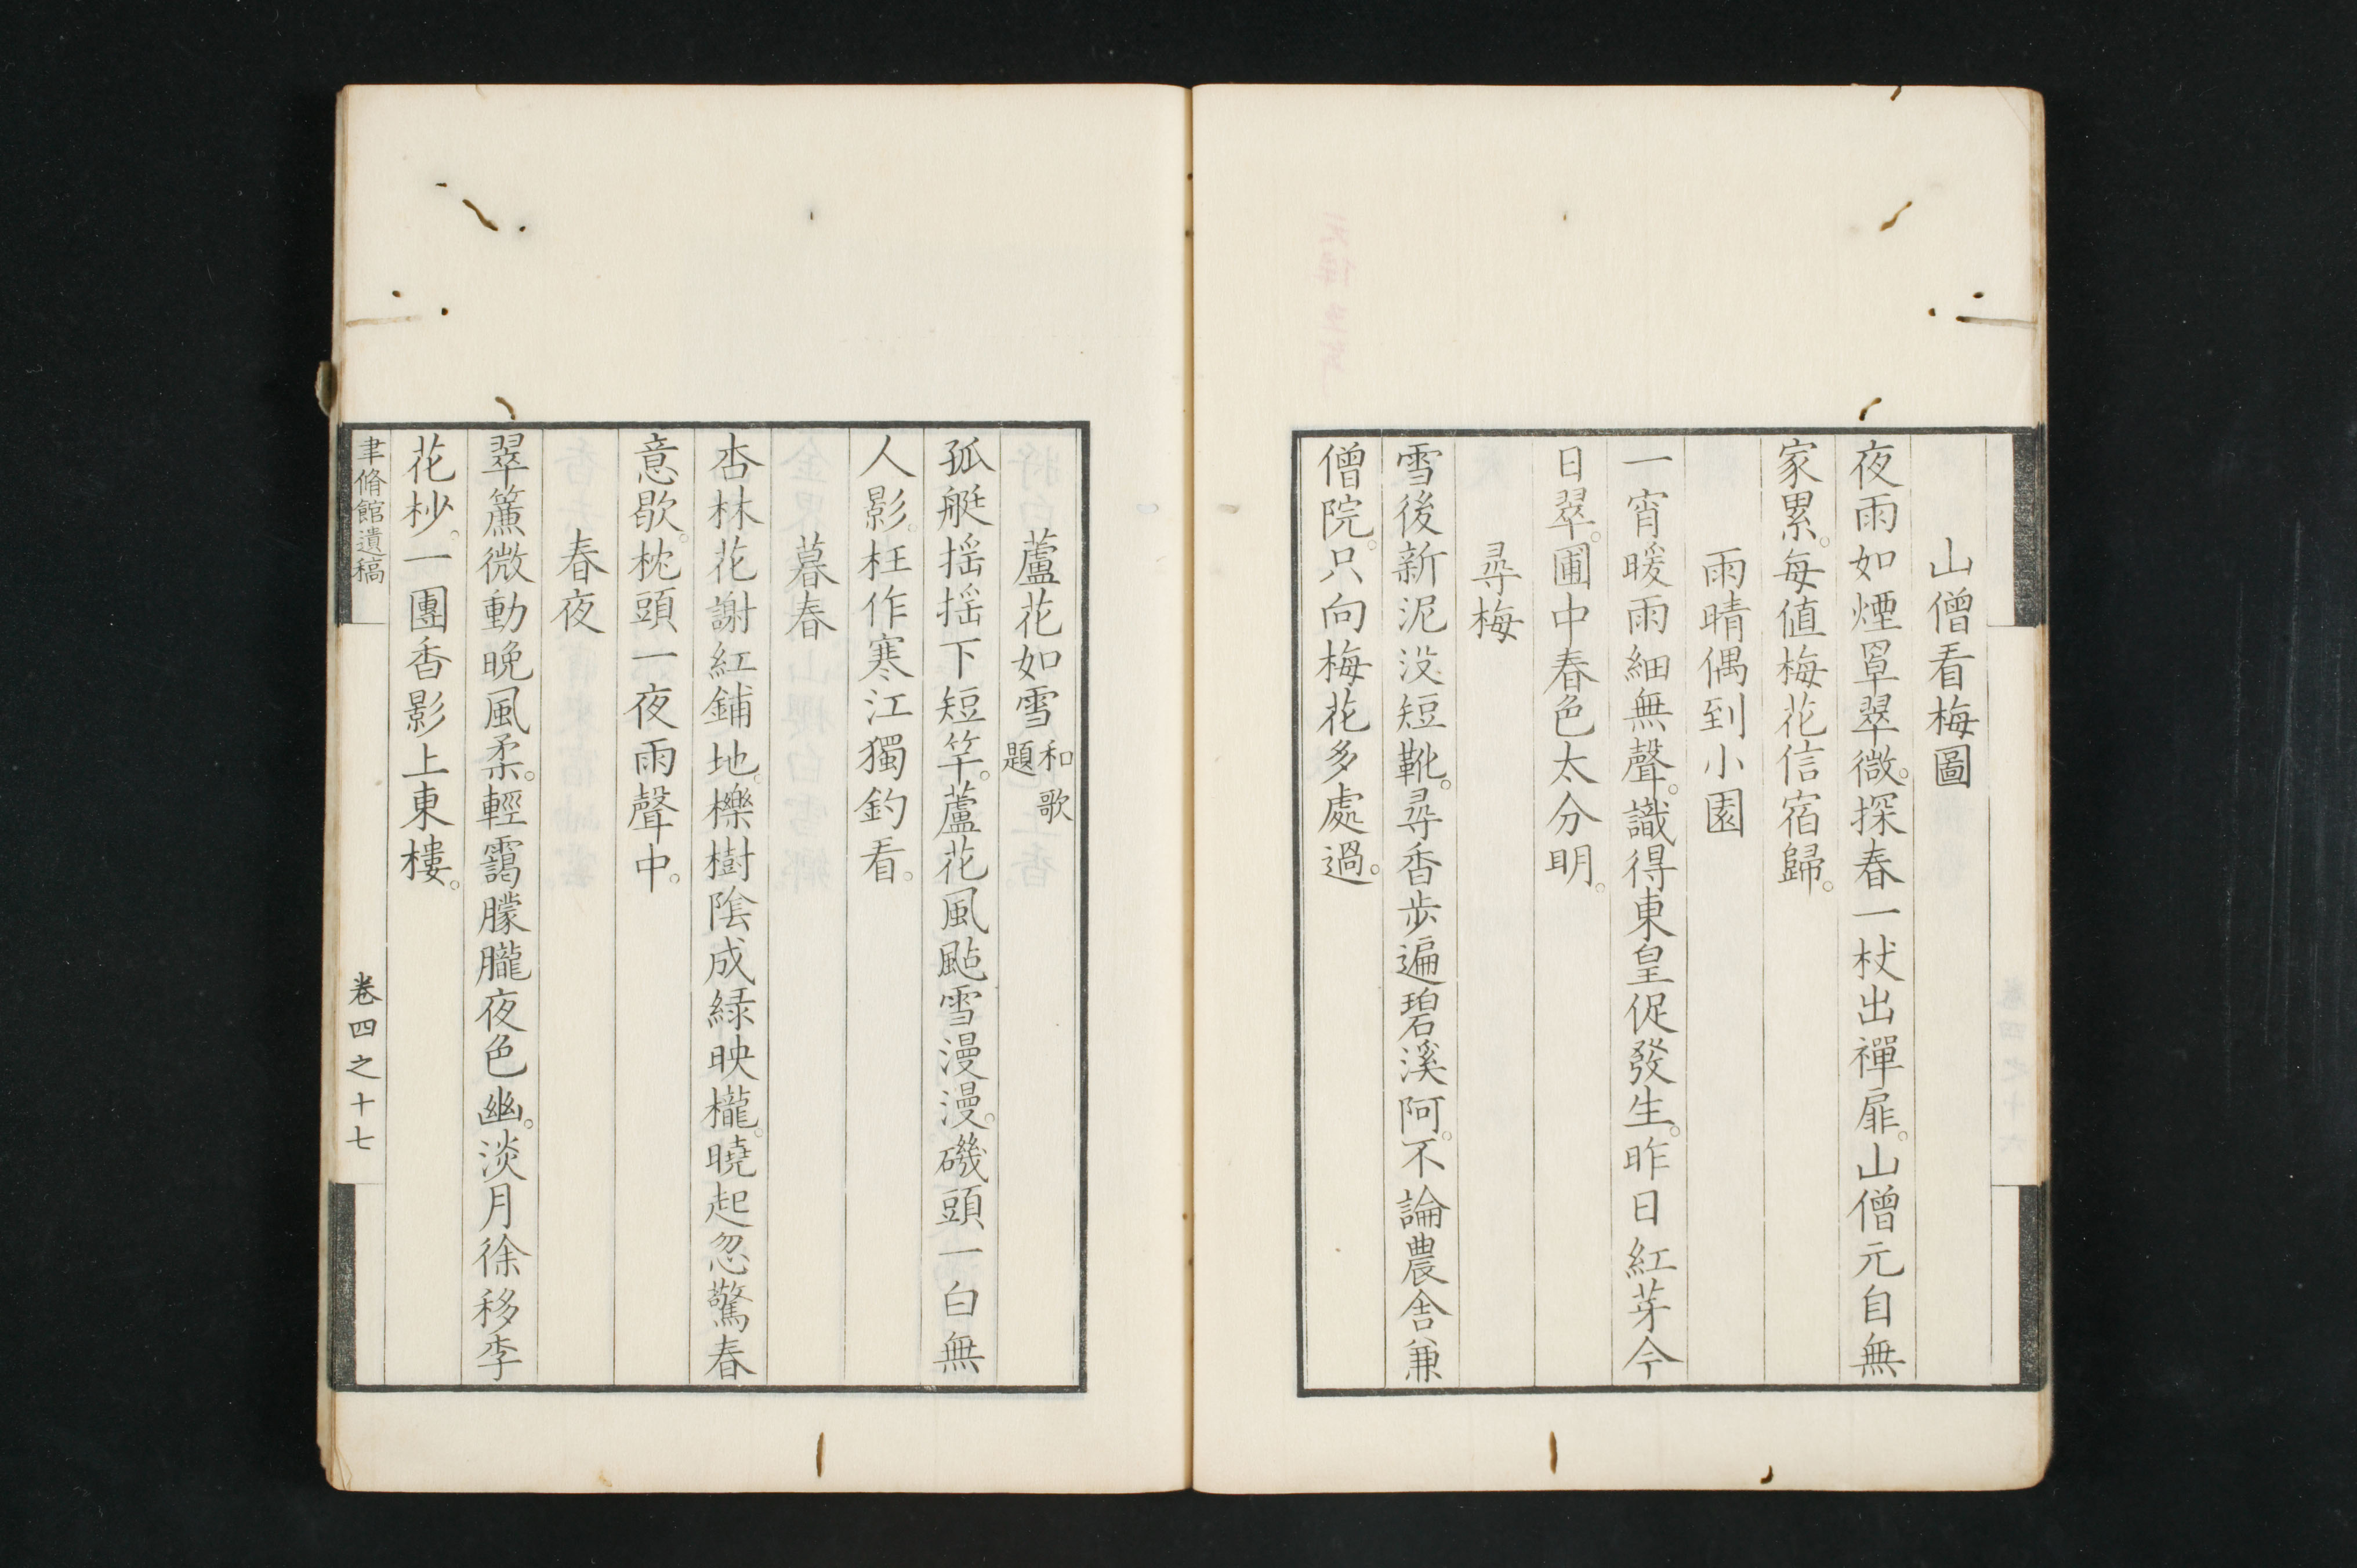 山僧看梅圖
夜雨如煙罩翠微。探春一杖出禪扉。山僧元自無
家累。每值梅花信宿歸。
雨晴偶到小園
一宵暖雨細無聲。識得東皇促發生。昨日紅芽今
日翠。圃中春色太分明。
尋梅
雪後新泥没短靴。尋香步遍碧溪阿。不論農舍兼
僧院。只向梅花多處過。
蘆花如雪 和歌題
孤艇揺揺下短竿。蘆花風颭雪漫漫。磯頭一白無
人影。枉作寒江獨釣看。
暮春
杏林花謝紅鋪地。櫟樹陰成緑映櫳。曉起忽驚春
意歇。枕頭一夜雨聲中。
春夜
翠簾微動晩風柔。輕靄朦朧夜色幽。淡月徐移李
花杪。一團香影上東樓。
聿脩館遺稿
卷四之十七